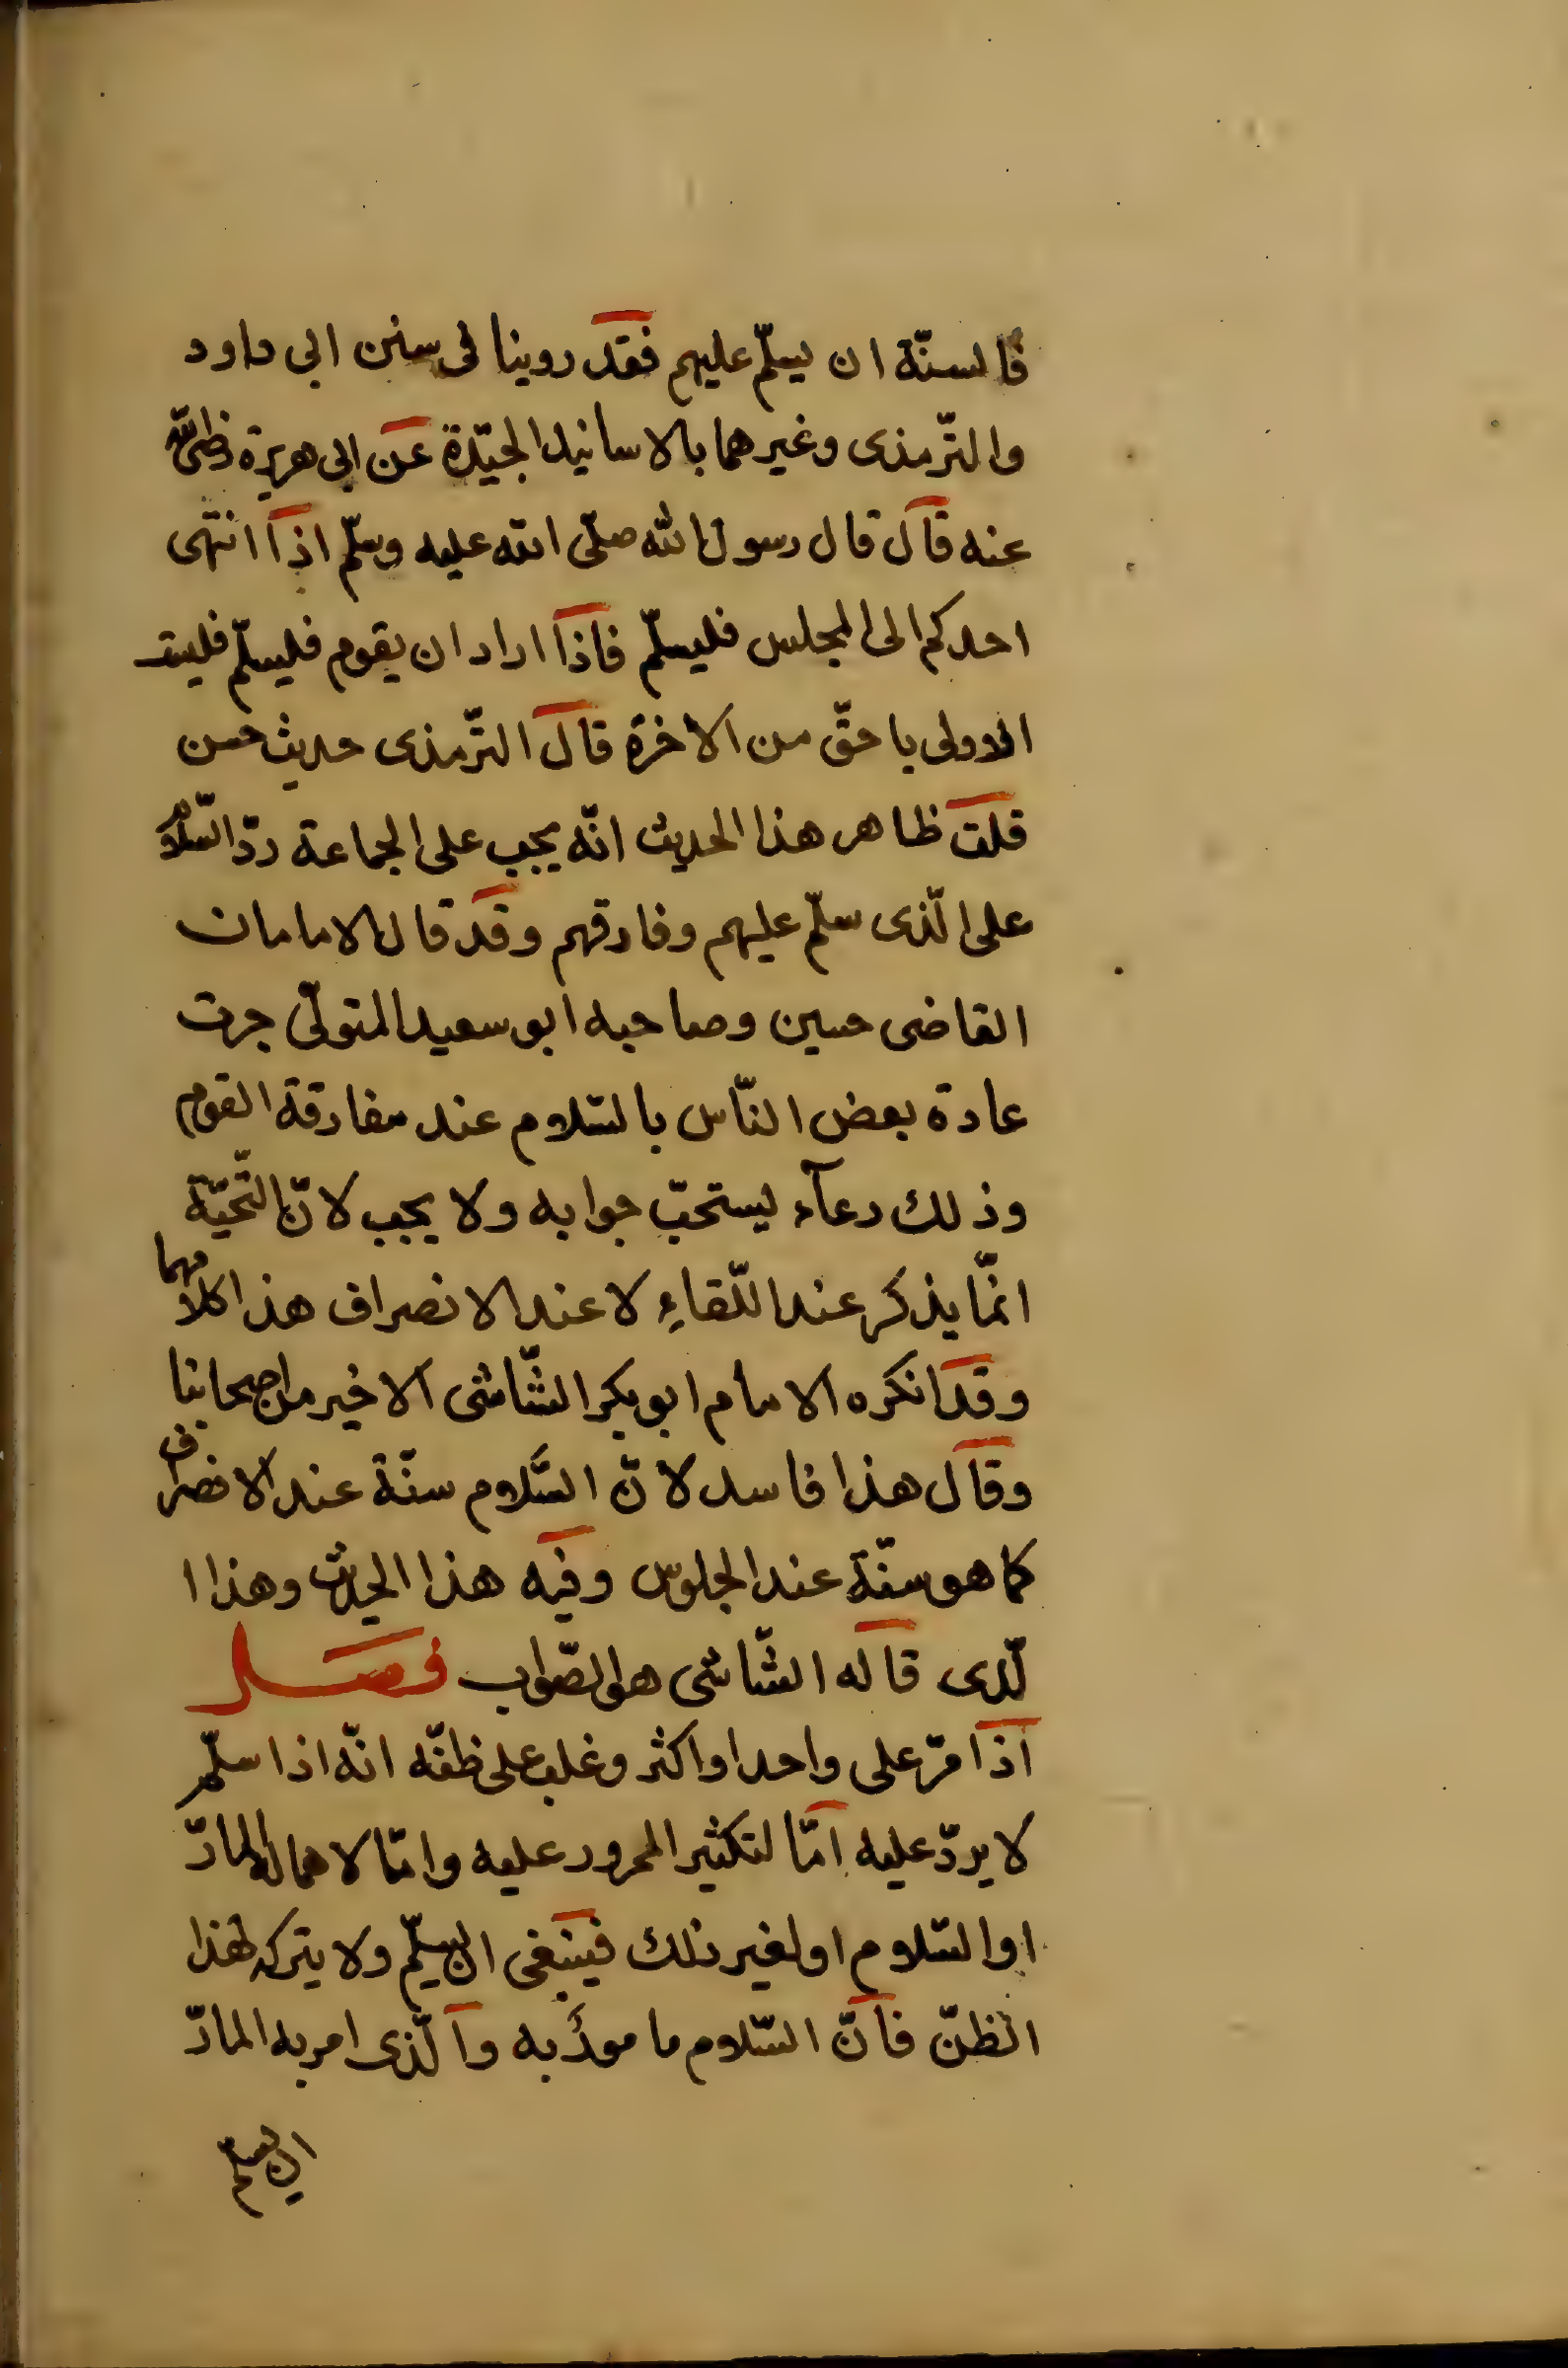 فالسنّة ان يسلّم عليهم فقد روينا فى سنن ابى داود
والتّرمذى وغيرهما بالاسانيد الجيّدة عن ابى هريرة رضى الله
عنه قال قال رسول الله صلّى الله عليه وسلّم اذا انتهى
احدكم الى المجلس فليسلّم فاذا اراد ان يقوم فليسلّم فليست
الاولى باحقّ من الاخرة قال التّرمذى حديث حسن
قلت ظاهر هذا الحديث انّه يجب على الجماعة ردّ السّلام
على الّذى سلّم عليهم وفارقهم وقد قال الامامان
القاضى حسين وصاحبه ابو سعيد المتولّى جرت
عادة بعض النّاس بالسّلام عند مفارقة القوم
وذلك دعآء يستحبّ جوابه ولا يجب لانّ التّحيّة
انّما يذكر عند اللّقاءِ لا عند الانصراف هذا كلامهما
وقد انكره الامام ابو بكر الشّاشى الاخير من اصحابنا
وقال هذا فاسد لانّ السّلام سنّة عند الانصراف
كما هو سنّة عند الجلوس وفيه هذا الحديث وهذا ا
لّذى قاله الشّاشى هو الصّواب فصل
اذا مرّ على واحد او اكثر وغلب على ظنّه انّه اذا سلّم
لا يردّ عليه امّا لتكثير الممرور عليه وامّا لاهماله المارّ
او السّلام او لغير ذلك فينبغى ان يسلّم ولا يتركه لهذا
الظنّ فانّ السّلام مامورٌ به والّذى امر به المارّ
ان يسلّم